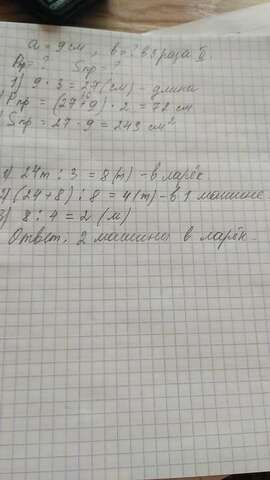 a = 9 см, в = ? в 3 раза б.
Pпр = ? Sпр = ?
1) 9 · 3 = 27 (см) - длина
Pпр = (27+9) · 2 = 72 см
Sпр = 27 · 9 = 243 см²
1) 24т : 3 = 8 (т) - в ларёк.
2) (24+8) : 8 = 4 (т) - в 1 машине
3) 8 : 4 = 2 (м)
Ответ. 2 машины в ларёк.